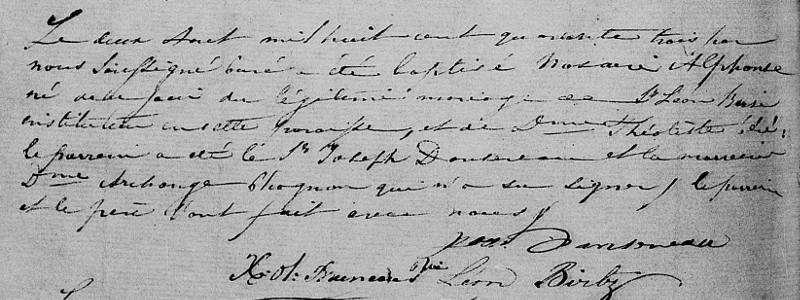 Le deux Aout mil huit cent quarante trois par
nous soussigné curé a été baptisé Nazaire Alphonse
né de ce jour du légitime mariage de Sr Léon
instituteur en cette paroisse, et de Dme Théotiste
le parrain a été le Sr Joseph Dansereau et la marraine
Dme Archange Phognon qui n'a su signer / le parrain
et le père l'ont fait avec nous /
Jos. Dansereau
Léon